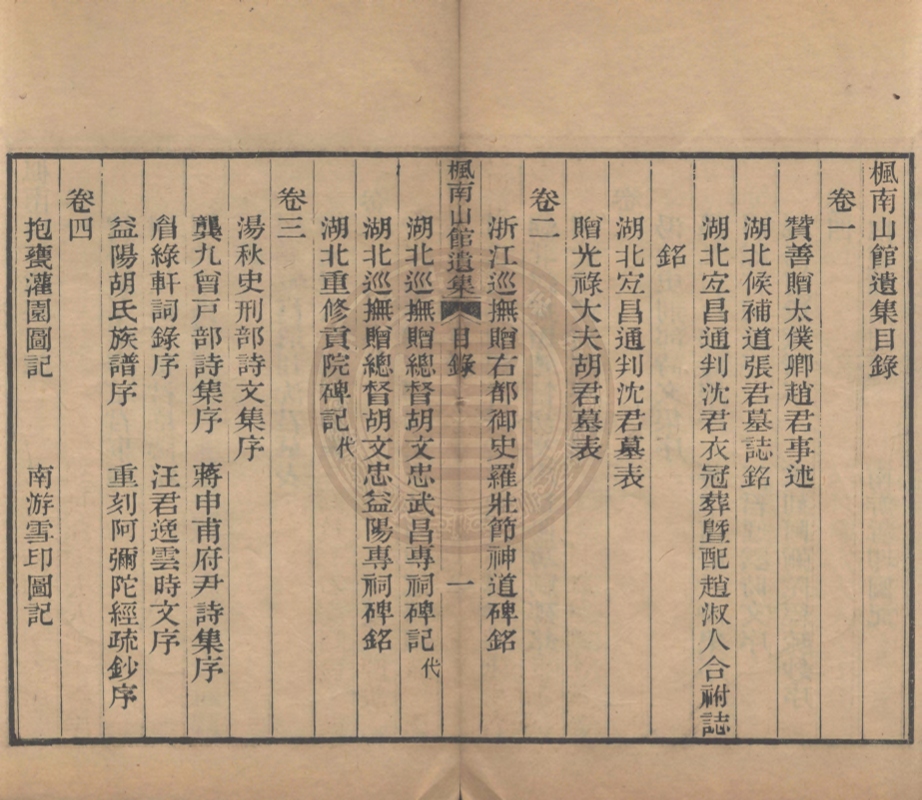 楓南山館遺集目錄
卷一
贊善贈太僕卿趙君事述
湖北候補道張君墓誌銘
湖北宐昌通判沈君衣冠葬暨配趙淑人合祔誌
銘
湖北宐昌通判沈君墓表
贈光祿大夫胡君墓表
卷二
浙江巡撫贈右都御史羅壯節神道碑銘
楓南山館遺集 目錄 一
湖北巡撫贈總督胡文忠武昌專祠碑記代
湖北巡撫贈總督胡文忠益陽專祠碑銘
湖北重修貢院碑記代
卷三
湯秋史刑部詩文集序
龔九曾戸部詩集序 蔣申甫府尹詩集序
眉綠軒詞錄序 汪君逸雲時文序
益陽胡氏族譜序 重刻阿彌陀經疏鈔序
卷四
抱甕灌園圖記 南游雪印圖記